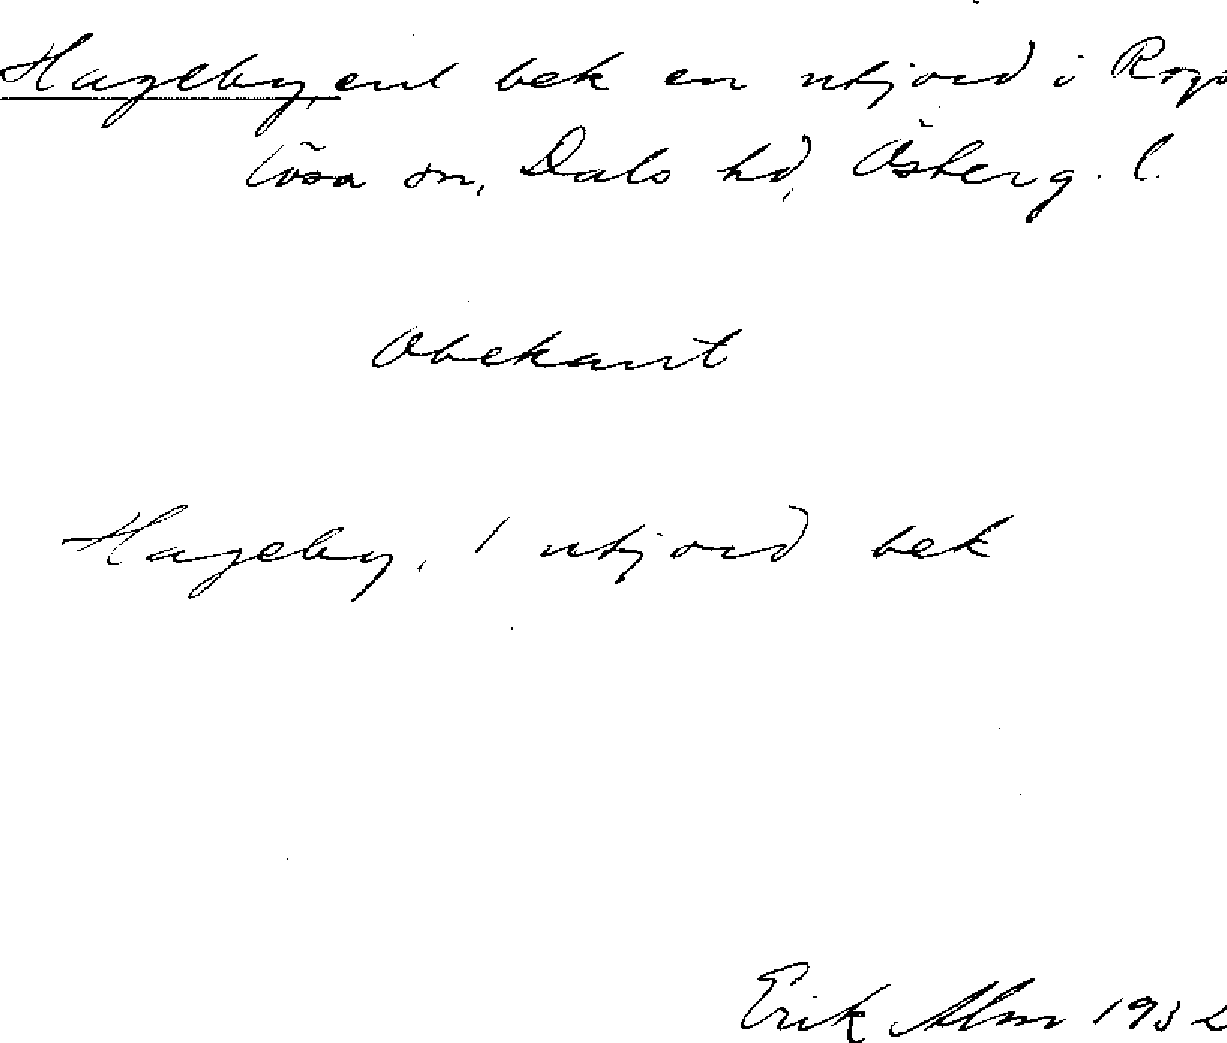 Hageby, enl bek en utjord i Rogs
lösa sn, Dals hd, Österg. l.
Obekant
Hageby, 1 utjord bek
Erik Alm 1932